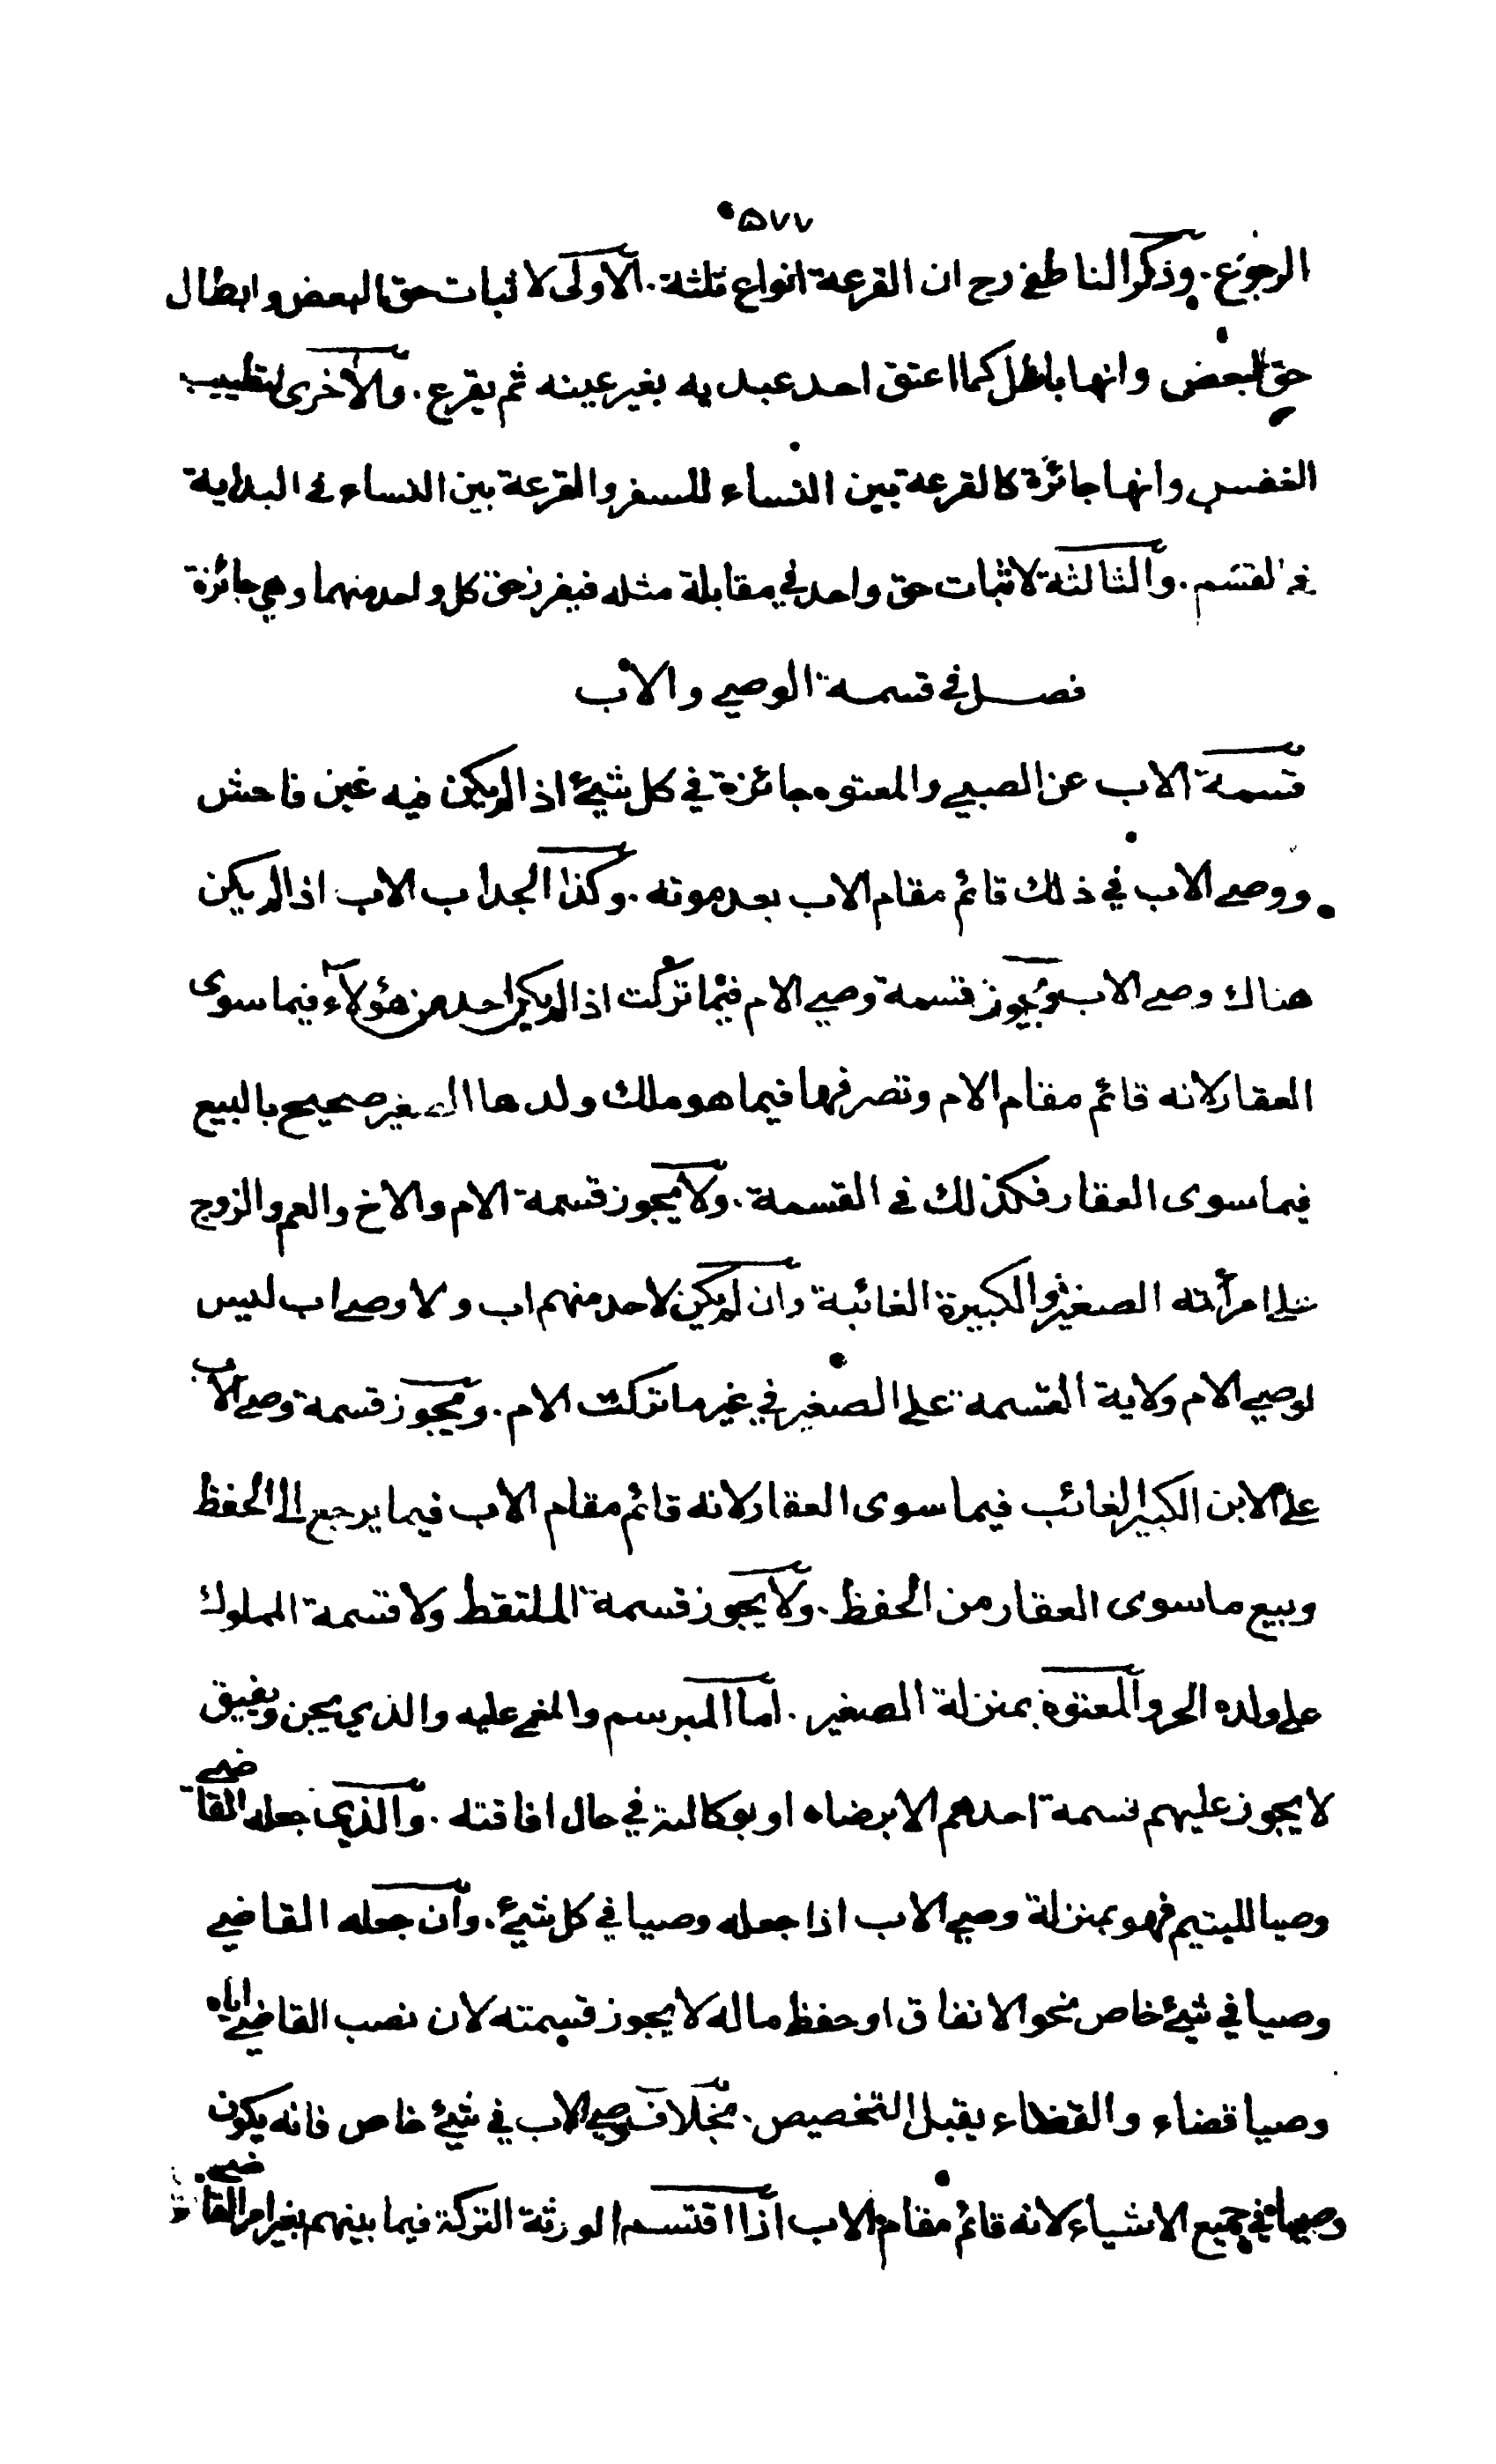 ۵۷۷
الرجوع . وذكر الناطفي رح ان القرعة انواع ثلثة . الاولى لاثبات حق البعض وابطال
حق البعض وانها باطل كما اعتق احد عبديه بغير عينه ثم يقرع . والاخرى لتطييب
النفس وانها جائزة كالقرعة بين النساء للسفر والقرعة بين النساء في البداية
في القسم . والثالثة لاثبات حق واحد في مقابلة مثله فيفرز حق كل واحد منهما وهي جائزة
فصل في قسمة الوصي والاب
قسمة الاب عن الصبي والمعتوه جائزة في كل شيئ اذا لم يكن فيه غبن فاحش
ووصي الاب في ذلك قائم مقام الاب بعد موته . وكذا الجد اب الاب اذا لم يكن
هناك وصي الاب ويجوز قسمة وصي الام فيما تركت اذا لم يكن احد من هؤلاء فيما سوى
العقار لانه قائم مقام الام وتصرفها فيما هو ملك ولدها الصغير صحيح بالبيع
فيما سوى العقار فكذلك في القسمة . ولا يجوز قسمة الام والاخ والعم والزوج
على امرأته الصغيرة والكبيرة الغائبة وان لم يكن لاحد منهم اب ولا وصي اب ليس
لوصي الام ولاية القسمة على الصغير في غير ما تركت الام . ويجوز قسمة وصي الاب
على الابن الكبير الغائب فيما سوى العقار لانه قائم مقام الاب فيما يرجع الى الحفظ
وبيع ما سوى العقار من الحفظ . ولا يجوز قسمة الملتقط ولا قسمة المملوك
على ولده الحر والمعتوه بمنزلة الصغير . اما المبرسم والمغمى عليه والذي يجن ويفيق
لا يجوز عليهم قسمة احدهم الا برضاه او بوكالته في حال افاقته . والذي جعله القاضي
وصيا لليتيم فهو بمنزلة وصي الاب اذا جعله وصيا في كل شيئ . وان جعله القاضي
وصيا في شيئ خاص نحو الانفاق او حفظ ماله لا يجوز قسمته لان نصب القاضي اياه
وصيا قضاء والقضاء يقبل التخصيص . بخلاف وصي الاب في شيئ خاص فانه يكون
وصيا في جميع الاشياء لانه قائم مقام الاب اذا اقتسم الورثة التركة فيما بينهم بغير امر القاضي